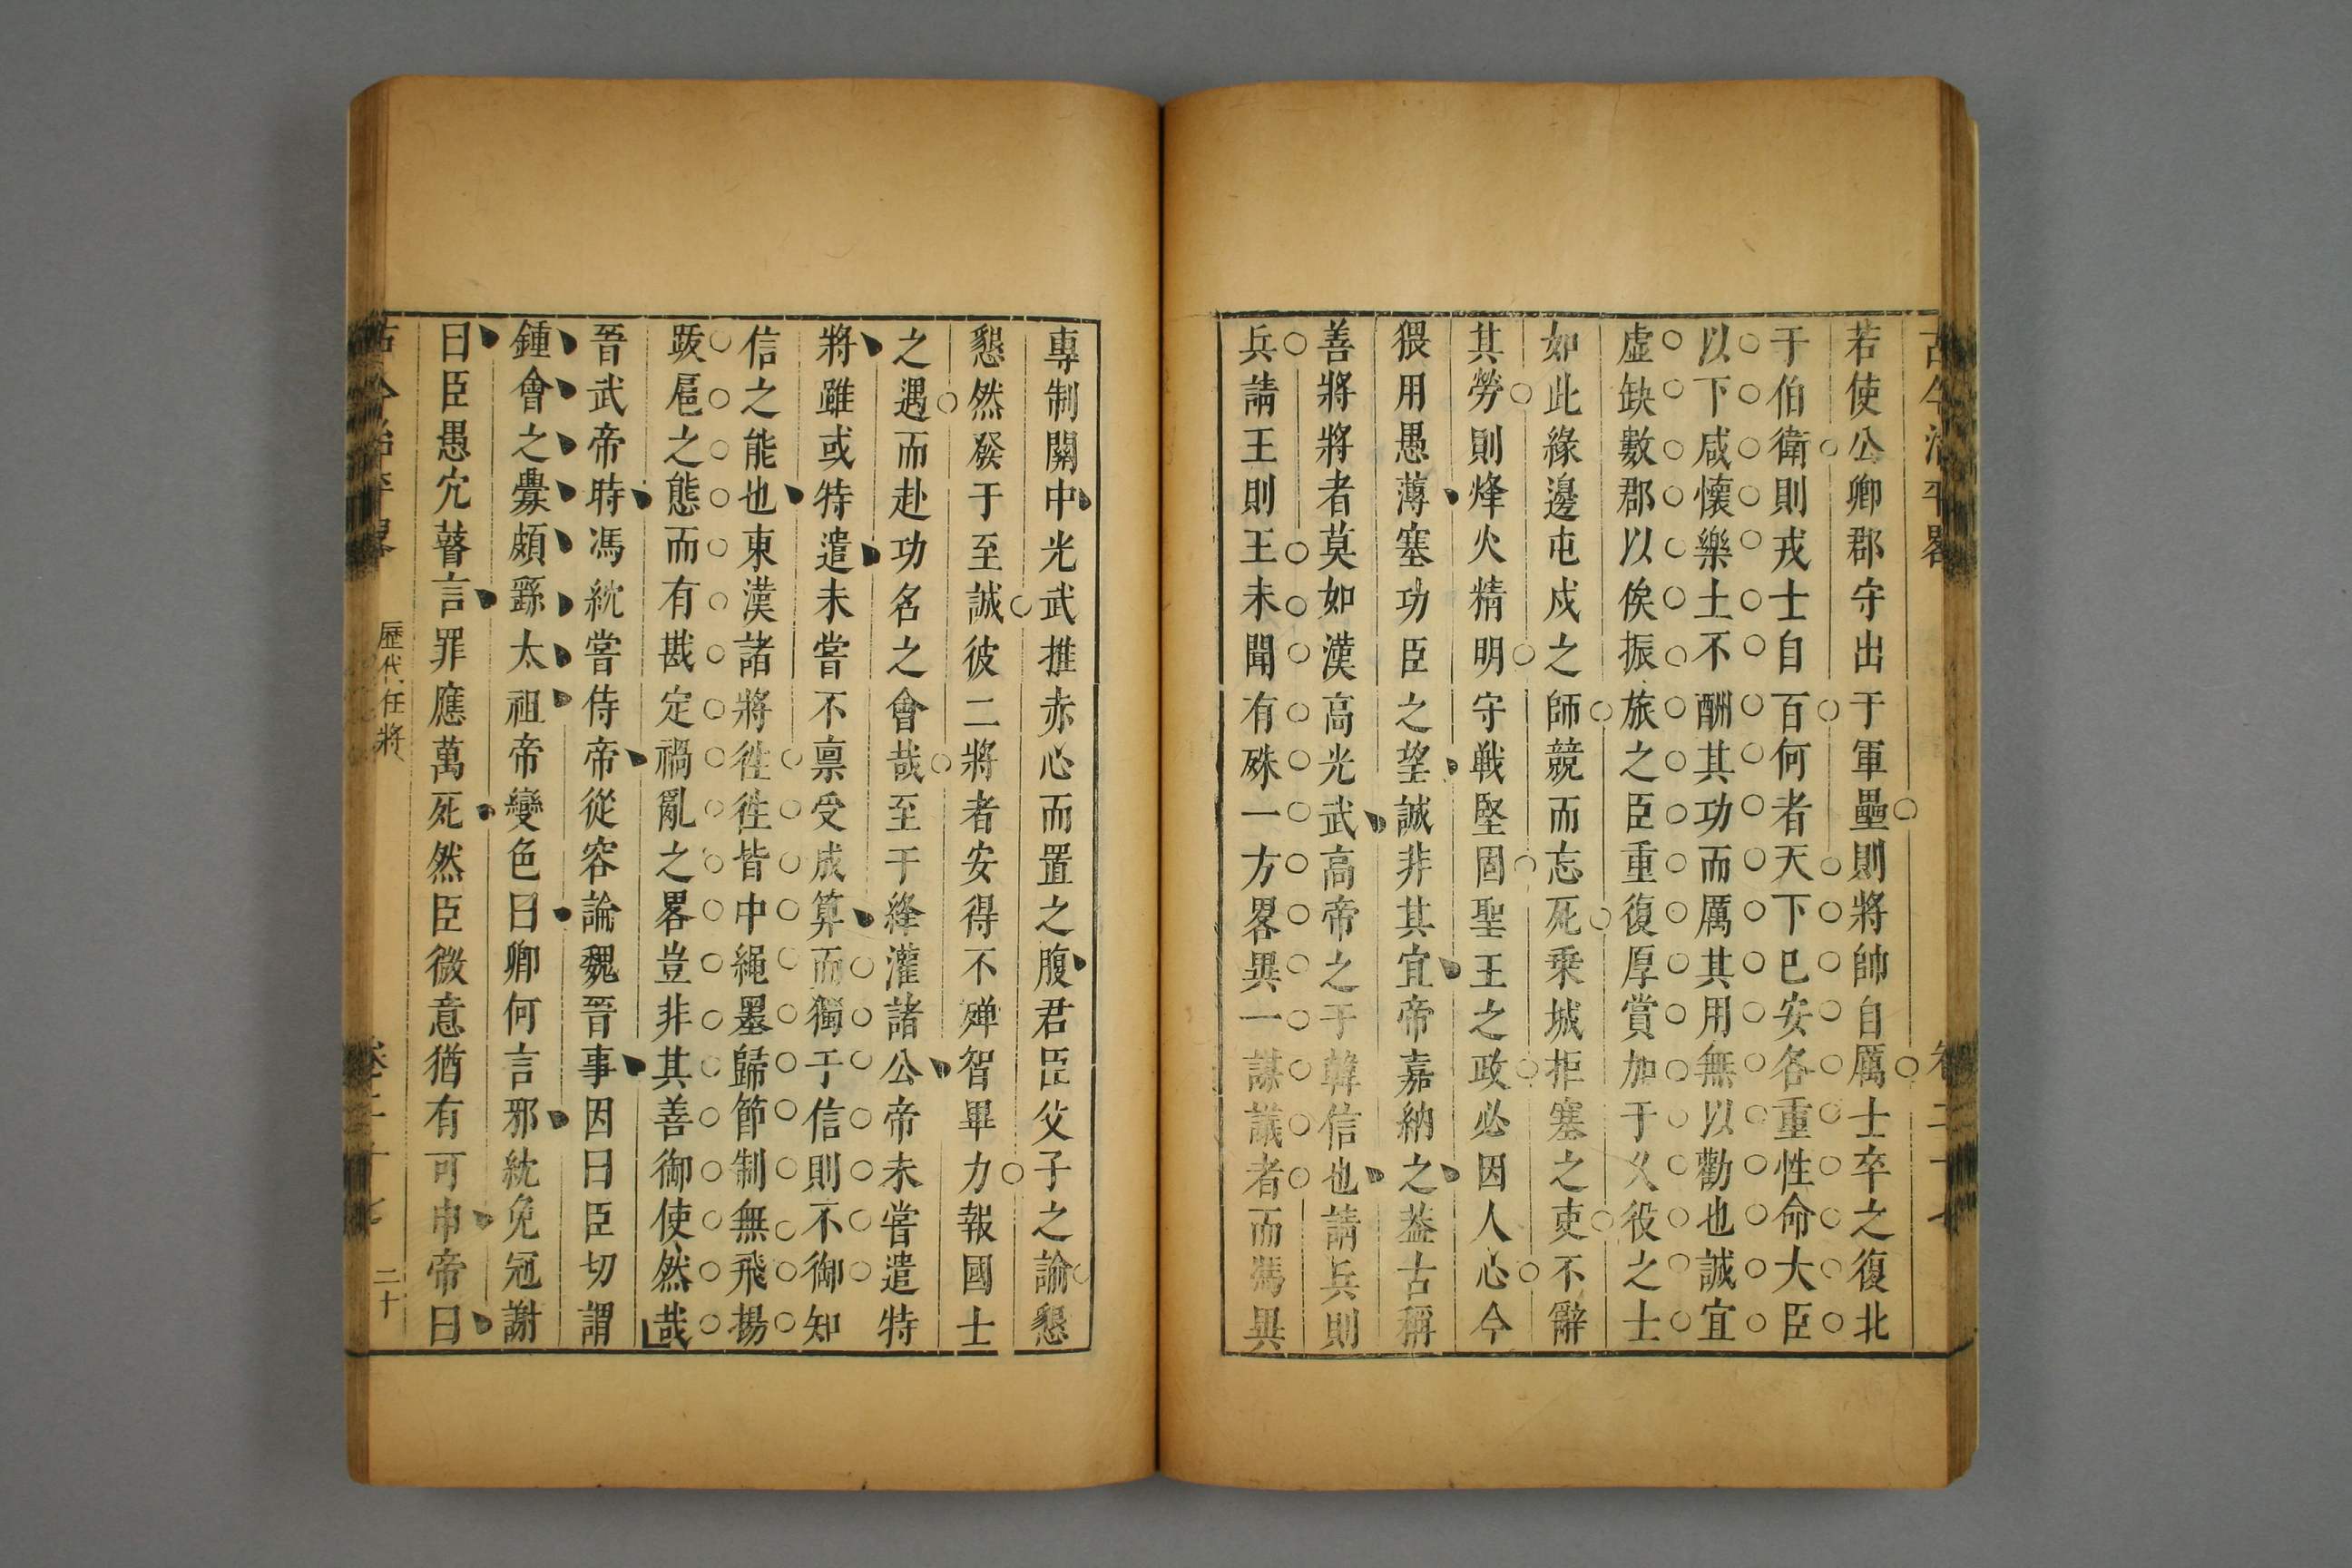 古今治平畧
卷二十七
若使公卿郡守出于軍壘則將帥自厲士卒之復北
于伯衛則戎士自百何者天下已安各重性命大臣
以下咸懷樂土不酬其功而厲其用無以勸也誠宜
虛缺數郡以俟振旅之臣重復厚賞加于久役之士
如此緣邊屯戍之師競而忘死乗城拒塞之吏不辭
其勞則烽火精明守戰堅固聖王之政必因人心今
猥用愚薄塞功臣之望誠非其宜帝嘉納之葢古稱
善將將者莫如漢高光武高帝之于韓信也請兵則
兵請王則王未聞有殊一方畧異一謀議者而馮異
專制關中光武推赤心而置之腹君臣父子之諭懇
懇然發于至誠彼二將者安得不殫智畢力報國士
之遇而赴功名之會哉至于絳灌諸公帝未嘗遣特
將雖或特遣未嘗不禀受成算而獨于信則不御知
信之能也東漢諸將徃徃皆中繩墨歸節制無飛揚
跋扈之態而有戡定禍亂之畧豈非其善御使然哉
晉武帝時馮紞嘗侍帝從容論魏晉事因曰臣切謂
鍾會之釁頗繇太祖帝變色曰卿何言邪紞免冠謝
曰臣愚冗瞽言罪應萬死然臣微意猶有可申帝曰
古今治平畧
歷代任將
卷二十七
二十